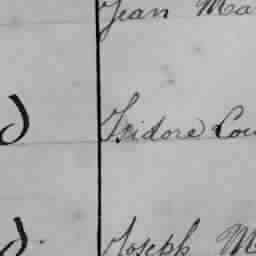 Jean Ma
d Isidore Cou
d. Joseph M